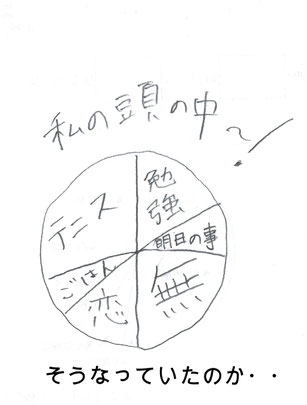 私の頭の中〜!
勉強
テニス
明日の事
ごはん
恋
無
そうなっていたのか・・